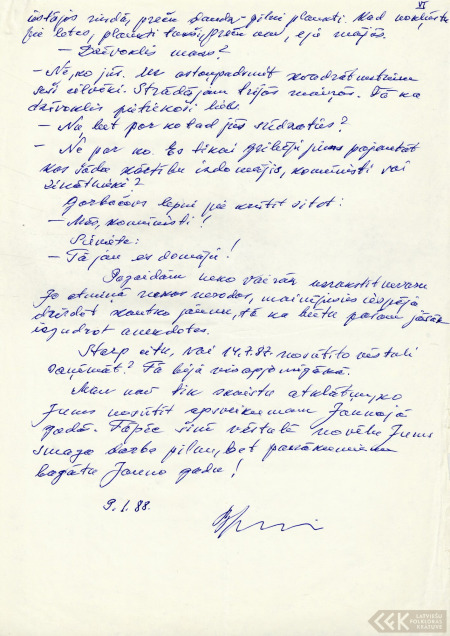 VI
iestājos rindā, preču daudz - pilni plaukti. Kad
pie letes, plaukti tukši, preču nav, eju mājās.
— Dzīvoklis mazs?
— Nē, ko jūs. Uz astoņpadsmit kvadrātmetriem
seši cilvēki. Strādājam trijās maiņās. Tā ka
dzīvoklis pietiekoši liels.
— Nu, bet par ko tad jūs sūdzaties?
— Nē par ko. Es tikai gribēju jums pajautāt
kas šādu kārtību izdomājis, komunisti vai
zinātnieki?
Gorbačovs lepni pie krūtīm sitot:
— Mēs, komunisti!
Sieviete:
— Tā jau es domāju!
Pagaidām neko vairāk uzrakstīt nevaru
Jo atmiņā nekas nerodas, mainījusies iespēja
dzirdēt kautko jaunu, tā ka būtu pašam jāsāk
izgudrot anekdotes.
Starp citu, vai 14.7.87. nosūtīto vēstuli
saņēmāt? Tā bija visapjomīgākā.
Man nav tik skaistu atklātņu, ko
Jums nosūtīt apsveikumam Jaunajā
gadā. Tāpēc šinī vēstulē novēlu Jums
smaga darba pilnu, bet panākumiem
bagātu Jauno gadu!
9.1.88.
LATVIEŠU
FOLKLORAS
KRĀTUVE